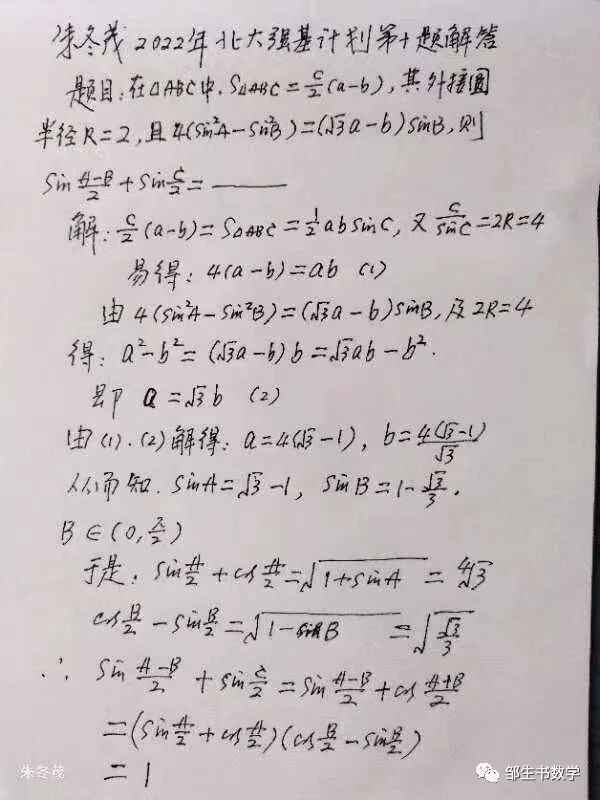 朱冬茂2022年北大强基计划第十题解答
题目:在△ABC中,S△ABC=c/2(a-b),其外接圆
半径R=2,且4(sin²A-sin²B)=(√3a-b)sinB,则
sin (A-B)/2 + sin C/2 = ____
解:c/2(a-b)=S△ABC=1/2absinC,又 c/sinC=2R=4
易得:4(a-b)=ab (1)
由4(sin²A-sin²B)=(√3a-b)sinB,及2R=4
得:a²-b²=(√3a-b)b=√3ab-b².
即 a=√3b (2)
由(1).(2)解得:a=4(√3-1), b=4(√3-1)/√3
从而知.sinA=√3-1, sinB=1-√3/3.
B∈(0,π/2)
于是:sin A/2 + cos A/2 = √(1+sinA) = ∜3
cos B/2 - sin B/2 = √(1-sinB) = √(√3/3)
∴ sin (A-B)/2 + sin C/2 = sin (A-B)/2 + cos (A+B)/2
=(sin A/2 + cos A/2)(cos B/2 - sin B/2)
=1
朱冬茂
邹生书数学